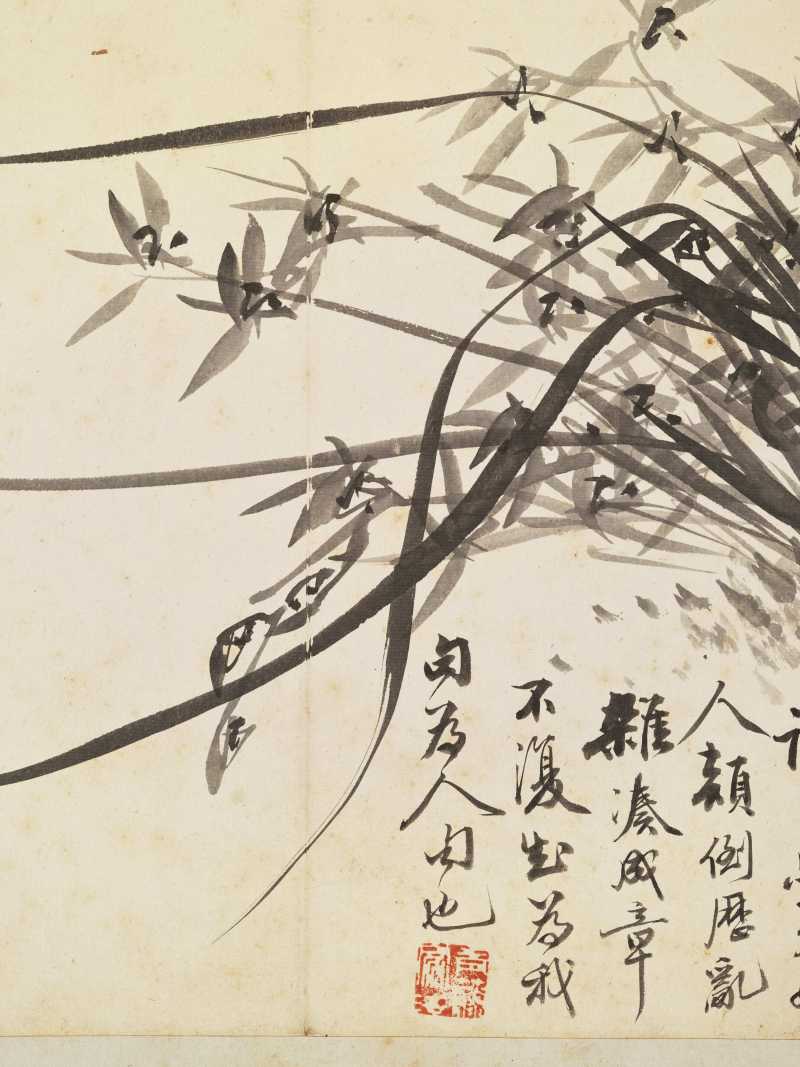 人顛倒歷亂
雜湊成章
不復知為我
句為人句也